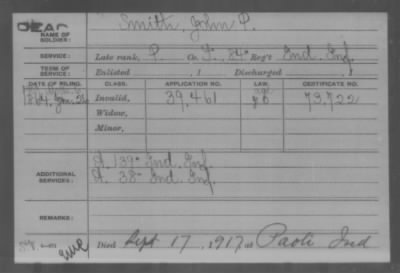 DEAD
NAME OF SOLDIER: Smith, John P.
SERVICE: Late rank, P. Co. F, 24" Reg't Ind. Inf.
TERM OF SERVICE: Enlisted , 1 Discharged , 1
DATE OF FILING. CLASS. APPLICATION NO. LAW. CERTIFICATE NO.
1864, Jan. Invalid, 39,461 73,722
Widow,
Minor,
ADDITIONAL SERVICES: A. 139" Ind. Inf.
A. 38" Ind. Inf.
REMARKS:
Died Sept 17, 1917, at Paoli Ind